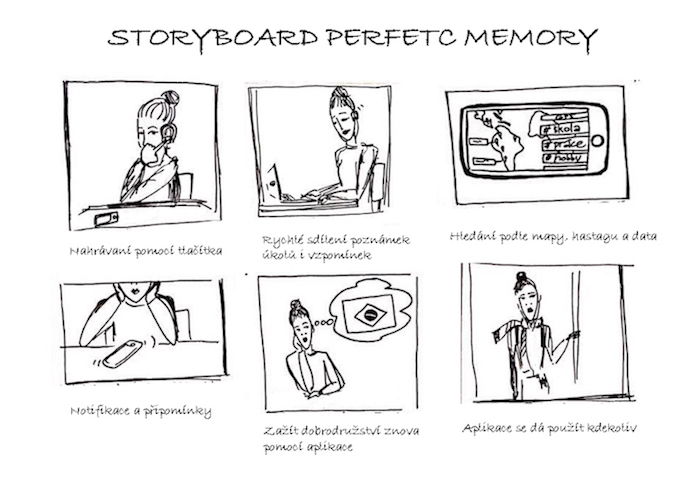 STORYBOARD PERFETC MEMORY
# škola
# práce
# hobby
Nahrávaní pomocí tlačítka
Rychlé sdílení poznámek
úkolů i vzpomínek
Hledání podle mapy, hastagu a data
Notifikace a připomínky
Zažít dobrodružství znova
pomocí aplikace
Aplikace se dá použít kdekoliv